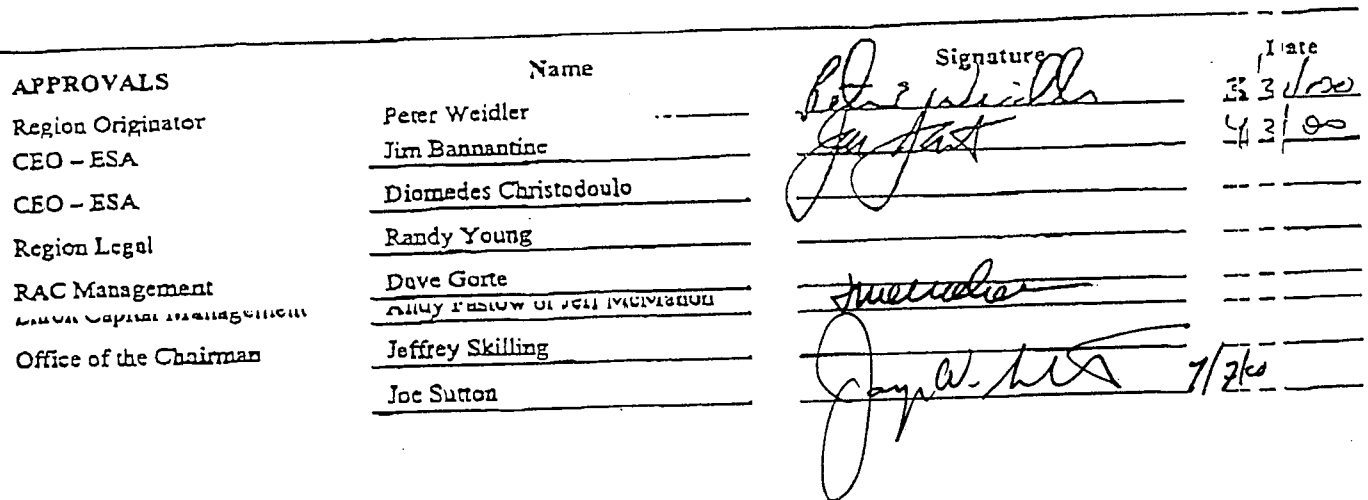 APPROVALS Name Signature Date
Region Originator Peter Weidler
CEO – ESA Jim Bannantine
CEO – ESA Diomedes Christodoulo
Region Legal Randy Young
RAC Management Dave Gorte
Capital Management Andy Fastow or Jeff McMahon
Office of the Chairman Jeffrey Skilling
Joe Sutton 7/7/00